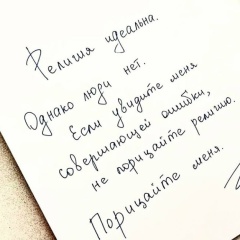 Религия идеальна.
Однако люди нет.
Если увидите меня
совершающей ошибки,
не порицайте религию.
Порицайте меня.